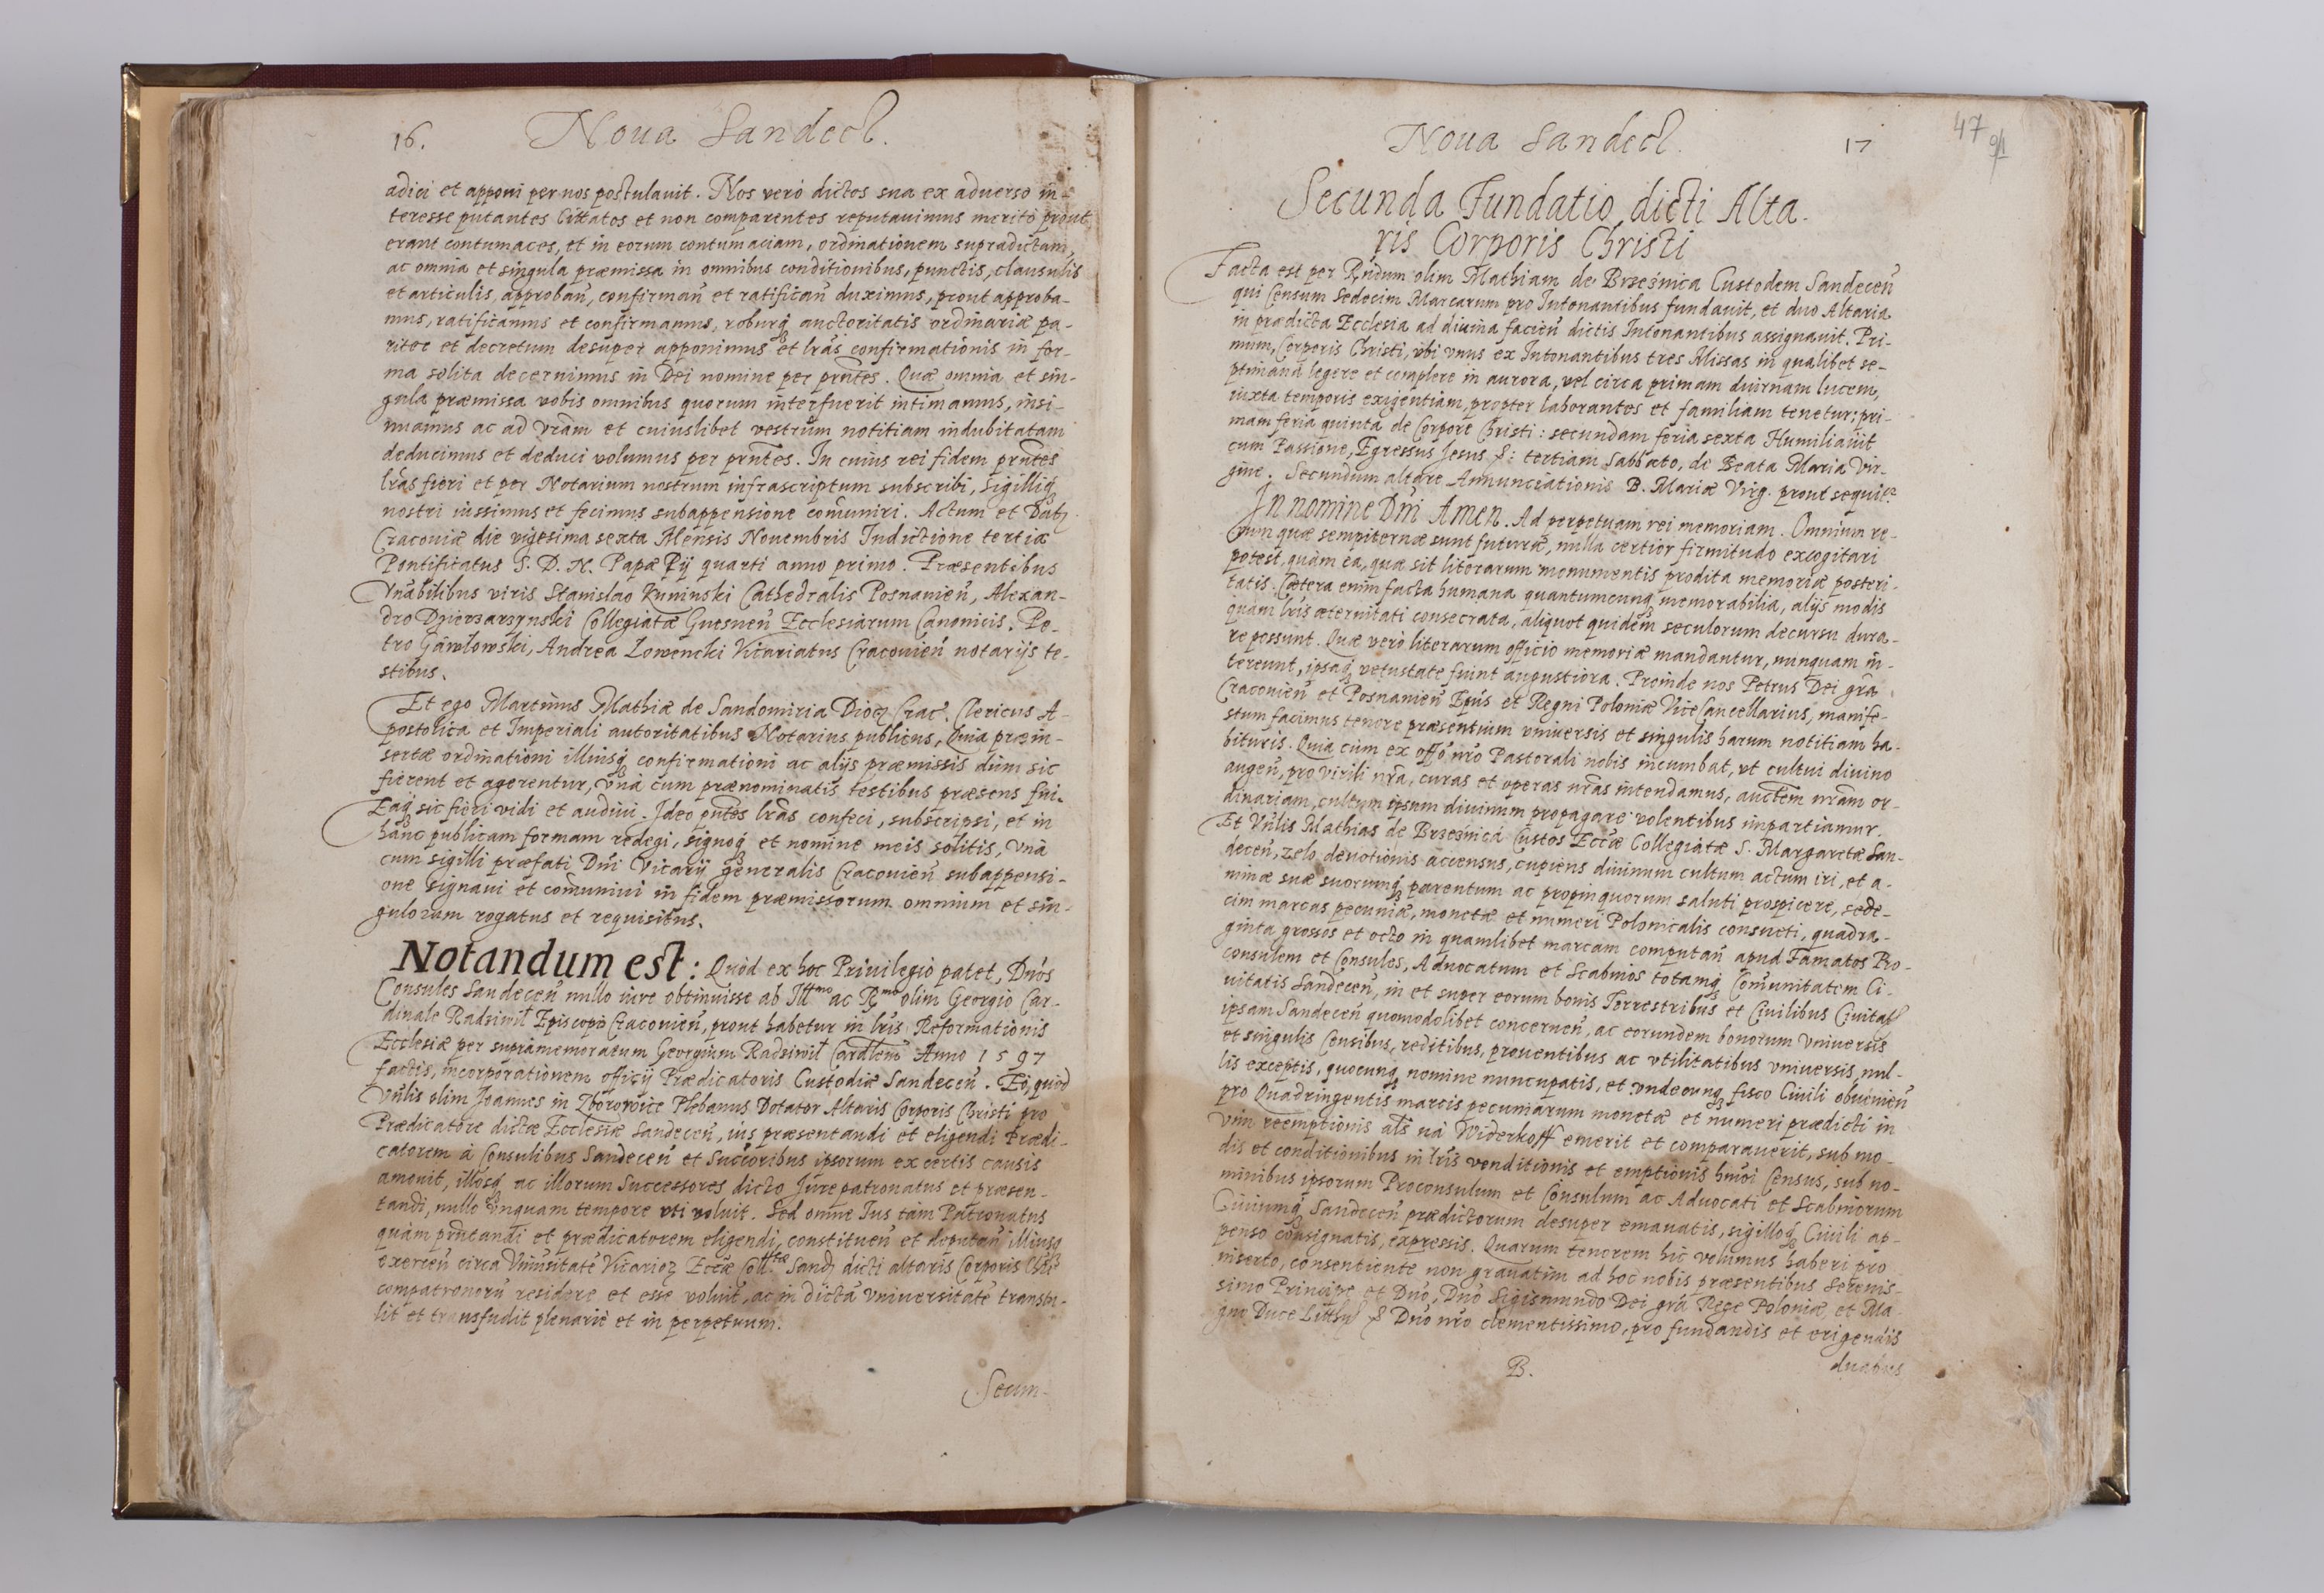 16. Noua Sandecz.
adici et apponi per nos postulauit. Nos verò dictos sua ex aduerso in-
teresse putantes Cittatos et non comparentes reputauimus meritò prout
erant contumaces, et in eorum contumaciam, ordinationem supradictam,
ac omnia et singula præmissa in omnibus conditionibus, punctis, clausulis
et articulis, approbañ, confirmañ et ratificañ duximus, prout approba-
mus, ratificamus et confirmamus, roburq3 auctoritatis ordinariæ pa-
riter et decretum desuper apponimus et lrãs confirmationis in for-
ma solita decernimus in Dei nomine per prñtes. Quæ omnia et sin-
gula præmissa vobis omnibus quorum interfuerit intimamus, insi-
nuamus ac ad vrãm et cuiuslibet vestrum notitiam indubitatam
deducimus et deduci volumus per prñtes. In cuius rei fidem prñtes
lrãs fieri et per Notarium nostrum infrascriptum subscribi, sigilliq3
nostri iussimus et fecimus subappensione cõmuniri. Actum et Datȝ
Cracouiæ die vigesima sexta Mensis Nouembris Indictione tertia
Pontificatus S. D. N. Papæ Pij quarti anno primo. Præsentibus
Vnãbilibus viris Stanislao Kuninski Cathedralis Posnanieñ, Alexan-
dro Dzierzarzynski Collegiatæ Gnesneñ Ecclesiarum Canonicis. Pe-
tro Gáwłowski, Andrea Lowencki Vicariatus Cracouieñ notarijs te-
stibus.
Et ego Martinus Mathiæ de Sandomiria Diocȝ Crac. Clericus A-
postolica et Imperiali autoritatibus Notarius publicus, Quia præin-
sertæ ordinationi illiusq3 confirmationi ac alijs præmissis dum sic
fierent et agerentur, vnà cum prænominatis testibus præsens fui.
Eaq3 sic fieri vidi et audiui. Ideo pñtes lrãs confeci, subscripsi, et in
hanc publicam formam redegi, signoq3 et nomine meis solitis, vnà
cum sigilli præfati Dñi Vicarij generalis Cracouieñ subappensi-
one signaui et cõmuniui in fidem præmissorum omnium et sin-
gulorum rogatus et requisitus.
Notandum est: Quòd ex hoc Priuilegio patet, Dnõs
Consules Sandeceñ nullo iure obtinuisse ab Illmo ac Rmo olim Georgio Car-
dinale Radziwił Episcopo Cracouieñ, prout habetur in lrĩs Reformationis
Ecclesiæ per supramemoratum Georgium Radziwił Cardlem Anno 1597
factis, incorporationem officij Prædicatoris Custodiæ Sandeceñ. Eò, quòd
Vnĩlis olim Joannes in Zborowice Plebanus Dotator Altaris Corporis Christi pro
Prædicatore dictæ Ecclesiæ Sandeceñ, ius præsentandi et eligendi Prædi-
catorem à Consulibus Sandeceñ et Succoribus ipsorum ex certis causis
amouit, illosq3 ac illorum Successores dicto Jurepatronatus et præsen-
tandi, nullo vnquam tempore vti voluit. Sed omne Jus tam Patronatus
quàm prñtandi et prædicatorem eligendi, constitueñ et deputañ illiusq3
exerceñ circa Vniũsitatẽ Vicarioȝ Eccæ Coll.tæ Sandȝ dicti altaris Corporis Chrĩ
compatronorũ residere et esse voluit, ac in dictã Vniuersitatẽ transtu-
lit et transfudit plenariè et in perpetuum.
Secun-
Noua Sandecz. 17
47
Secunda Fundatio dicti Alta-
ris Corporis Christi
Facta est per Rñdum olim Mathiam de Brzeznica Custodem Sandeceñ
qui Censum Sedecim Marcarum pro Intonantibus fundauit, et duo Altaria
in prædicta Ecclesia ad diuina facieñ dictis Intonantibus assignauit. Pri-
mum, Corporis Christi, vbi vnus ex Intonantibus tres Missas in qualibet se-
ptimana legere et complere in aurora, vel circa primam diurnam lucem,
iuxta temporis exigentiam, propter laborantes et familiam tenetur: pri-
mam feria quinta de Corpore Christi: secundam feria sexta Humiliauit
cum Passione, Egressus Jesus &: tertiam Sabbato, de Beata Maria Vir-
gine. Secundum altare Annunciationis B. Mariæ Virg. prout sequitr
In nomine Dñi Amen. Ad perpetuam rei memoriam. Omnium re-
rum quæ sempiternæ sunt futuræ, nulla certior firmitudo excogitari
potest, quàm ea, quæ sit literarum monumentis prodita memoriæ posteri-
tatis. Cætera enim facta humana quantumcunq3 memorabilia, alijs modis
quàm lrĩs æternitati consecrata, aliquot quidem seculorum decursu dura-
re possunt. Quæ verò literarum officio memoriæ mandantur, nunquam in-
tereunt, ipsaq3 vetustate fiunt angustiora. Proinde nos Petrus Dei grã
Cracouieñ et Posnanieñ Epũs et Regni Poloniæ Vice Cancellarius, manife-
stum facimus tenore præsentium vniuersis et singulis harum notitiam ha-
bituris. Quia cùm ex offõ nrõ Pastorali nobis incumbat, vt cultui diuino
augeñ, pro virili nrã, curas et operas nrãs intendamus, auctẽm nrãm or-
dinariam, cultum ipsum diuinum propagare volentibus impartiamur.
Et Vnĩlis Mathias de Brzeznica Custos Eccæ Collegiatæ S. Margaretæ San-
deceñ, zelo deuotionis accensus, cupiens diuinum cultum actum iri, et a-
nimæ suæ suorumq3 parentum ac propinquorum saluti prospicere, sede-
cim marcas pecuniæ, monetæ et numeri Polonicalis consueti, quadra-
ginta grossos et octo in quamlibet marcam computañ apud Famatos Pro-
consulem et Consules, Aduocatum et Scabinos totamq3 Comunitatem Ci-
uitatis Sandeceñ, in et super eorum bonis Terrestribus et Ciuilibus Ciuitatȝ
ipsam Sandeceñ quomodolibet concerneñ, ac eorundem bonorum vniuersis
et singulis Censibus, reditibus, prouentibus ac vtilitatibus vniuersis, nul-
lis exceptis, quocunq3 nomine nuncupatis, et vndecunq3 fisco Ciuili obuenieñ
pro Quadringentis marcis pecuniarum monetæ et numeri prædicti in
vim reemptionis als ná Widerkoff emerit et comparauerit, sub mo-
dis et conditionibus in lrĩs venditionis et emptionis hmõi Census, sub no-
minibus ipsorum Proconsulum et Consulum ac Aduocati et Scabinorum
Ciuiumq3 Sandeceñ prædictorum desuper emanatis, sigilloq3 Ciuili ap-
penso consignatis, expressis. Quarum tenorem hic volumus haberi pro
inserto, consentiente non grauatim ad hoc nobis præsentibus Serenis-
simo Principe et Dnõ, Dnõ Sigismundo Dei grã Rege Poloniæ, et Ma-
gno Duce Litthȝ & Dnõ nrõ clementissimo, pro fundandis et erigendis
B. duabus